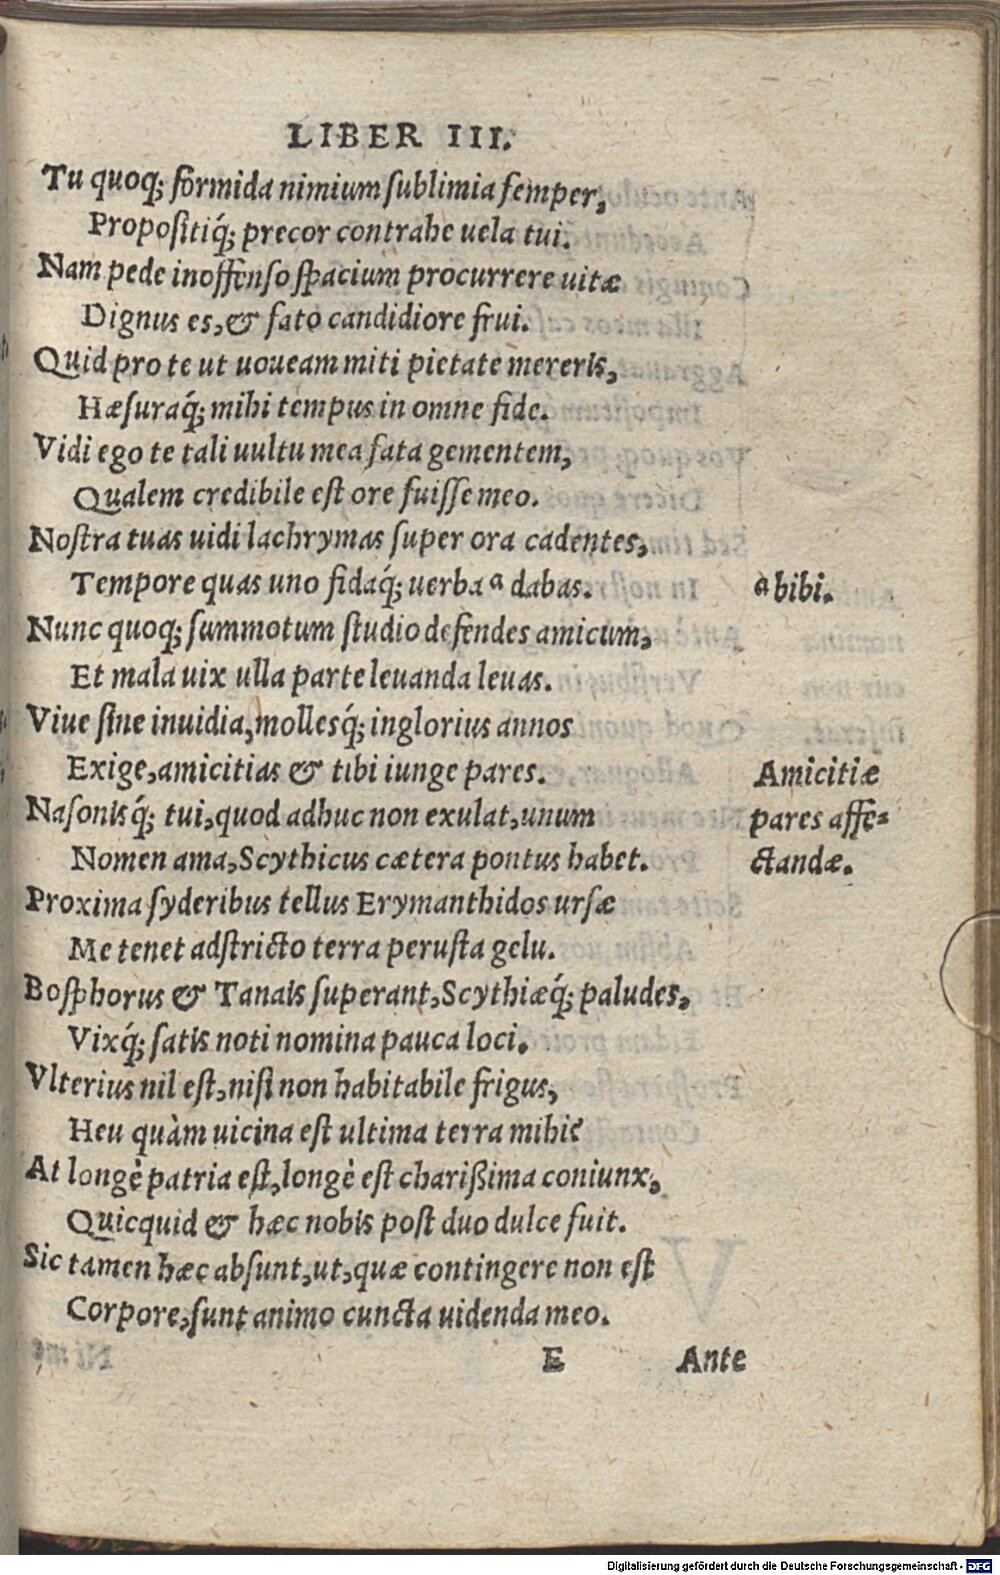 LIBER III.
Tu quoq; formida nimium sublimia semper,
Propositiq́; precor contrahe uela tui.
Nam pede inoffenso spacium procurrere uitæ
Dignus es, & fato candidiore frui.
Quid pro te ut uoueam miti pietate mereris,
Hæsuraq́; mihi tempus in omne fide.
Vidi ego te tali uultu mea fata gementem,
Qualem credibile est ore fuisse meo.
Nostra tuas uidi lachrymas super ora cadentes,
Tempore quas uno fidaq́; uerba ᵃ dabas.
ᵃ bibi.
Nunc quoq; summotum studio defendes amicum,
Et mala uix ulla parte leuanda leuas.
Viue sine inuidia, mollesq́; inglorius annos
Exige, amicitias & tibi iunge pares.
Nasonisq́; tui, quod adhuc non exulat, unum
Nomen ama, Scythicus cætera pontus habet.
Amicitiæ
pares affe=
ctandæ.
Proxima syderibus tellus Erymanthidos ursæ
Me tenet adstricto terra perusta gelu.
Bosphorus & Tanais superant, Scythiæq́; paludes,
Vixq́; satis noti nomina pauca loci.
Vlterius nil est, nisi non habitabile frigus,
Heu quàm uicina est ultima terra mihi?
At longè patria est, longè est charißima coniunx,
Quicquid & hæc nobis post duo dulce fuit.
Sic tamen hæc absunt, ut, quæ contingere non est
Corpore, sunt animo cuncta uidenda meo.
E Ante
Digitalisierung gefördert durch die Deutsche Forschungsgemeinschaft - DFG